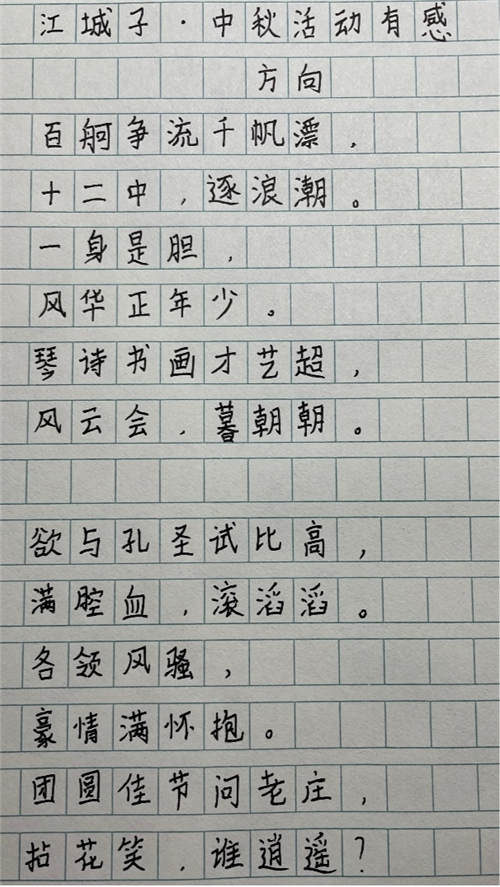 江城子·中秋活动有感
方向
百舸争流千帆漂，
十二中，逐浪潮。
一身是胆，
风华正年少。
琴诗书画才艺超，
风云会，暮朝朝。
欲与孔圣试比高，
满腔血，滚滔滔。
各领风骚，
豪情满怀抱。
团圆佳节问老庄，
拈花笑，谁逍遥？